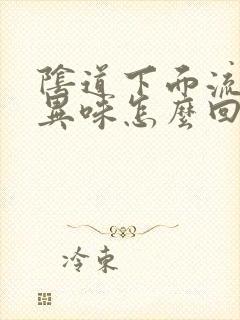 陰道下面流
異味怎麼回
冷東